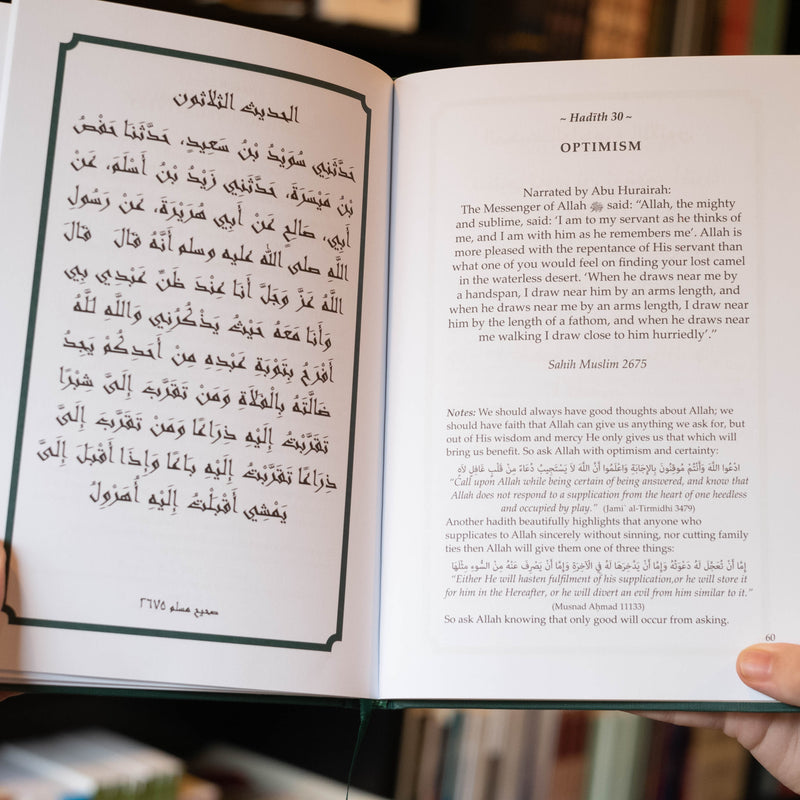 الحديث الثلاثون
حَدَّثَنِي سُوَيْدُ بْنُ سَعِيدٍ، حَدَّثَنَا حَفْصُ
بْنُ مَيْسَرَةَ، حَدَّثَنِي زَيْدُ بْنُ أَسْلَمَ، عَنْ
أَبِي، صَالِحٍ عَنْ أَبِي هُرَيْرَةَ، عَنْ رَسُولِ
اللَّهِ صلى الله عليه وسلم أَنَّهُ قَالَ ‏ قَالَ
اللَّهُ عَزَّ وَجَلَّ أَنَا عِنْدَ ظَنِّ عَبْدِي بِي
وَأَنَا مَعَهُ حَيْثُ يَذْكُرُنِي وَاللَّهِ لَلَّهُ
أَفْرَحُ بِتَوْبَةِ عَبْدِهِ مِنْ أَحَدِكُمْ يَجِدُ
ضَالَّتَهُ بِالْفَلاَةِ وَمَنْ تَقَرَّبَ إِلَىَّ شِبْرًا
تَقَرَّبْتُ إِلَيْهِ ذِرَاعًا وَمَنْ تَقَرَّبَ إِلَىَّ
ذِرَاعًا تَقَرَّبْتُ إِلَيْهِ بَاعًا وَإِذَا أَقْبَلَ إِلَىَّ
يَمْشِي أَقْبَلْتُ إِلَيْهِ أُهَرْوِلُ
صحيح مسلم ٢٦٧٥
~ Hadīth 30 ~
OPTIMISM
Narrated by Abu Hurairah:
The Messenger of Allah ﷺ said: “Allah, the mighty
and sublime, said: ‘I am to my servant as he thinks of
me, and I am with him as he remembers me’. Allah is
more pleased with the repentance of His servant than
what one of you would feel on finding your lost camel
in the waterless desert. ‘When he draws near me by
a handspan, I draw near him by an arms length, and
when he draws near me by an arms length, I draw near
him by the length of a fathom, and when he draws near
me walking I draw close to him hurriedly’.”
Sahih Muslim 2675
Notes: We should always have good thoughts about Allah; we
should have faith that Allah can give us anything we ask for, but
out of His wisdom and mercy He only gives us that which will
bring us benefit. So ask Allah with optimism and certainty:
ادْعُوا اللَّهَ وَأَنْتُمْ مُوقِنُونَ بِالإِجَابَةِ وَاعْلَمُوا أَنَّ اللَّهَ لاَ يَسْتَجِيبُ دُعَاءً مِنْ قَلْبٍ غَافِلٍ لاَهٍ
“Call upon Allah while being certain of being answered, and know that
Allah does not respond to a supplication from the heart of one heedless
and occupied by play.” (Jami` al-Tirmidhi 3479)
Another hadith beautifully highlights that anyone who
supplicates to Allah sincerely without sinning, nor cutting family
ties then Allah will give them one of three things:
إِمَّا أَنْ تُعَجَّلَ لَهُ دَعْوَتُهُ وَإِمَّا أَنْ يَدَّخِرَهَا لَهُ فِي الْآخِرَةِ وَإِمَّا أَنْ يَصْرِفَ عَنْهُ مِنْ السُّوءِ مِثْلَهَا
“Either He will hasten fulfilment of his supplication,or he will store it
for him in the Hereafter, or he will divert an evil from him similar to it.”
(Musnad Aḥmad 11133)
So ask Allah knowing that only good will occur from asking.
60